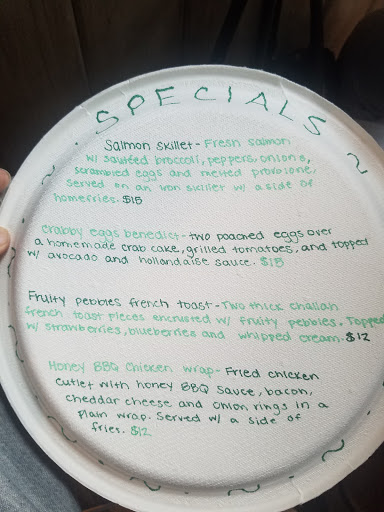 SPECIALS
Salmon skillet - Fresh salmon
w/ sautéed broccoli, peppers, onions,
scrambled eggs and melted provolone.
Served on an iron skillet w/ a side of
homefries. $15
Crabby eggs benedict - two poached eggs over
a homemade crab cake, grilled tomatoes, and topped
w/ avocado and hollandaise sauce. $15
Fruity pebbles french toast - Two thick challah
french toast pieces encrusted w/ fruity pebbles. Topped
w/ strawberries, blueberries and whipped cream. $12
Honey BBQ Chicken wrap - Fried chicken
cutlet with honey BBQ sauce, bacon,
cheddar cheese and onion rings in a
plain wrap. Served w/ a side of
fries. $12